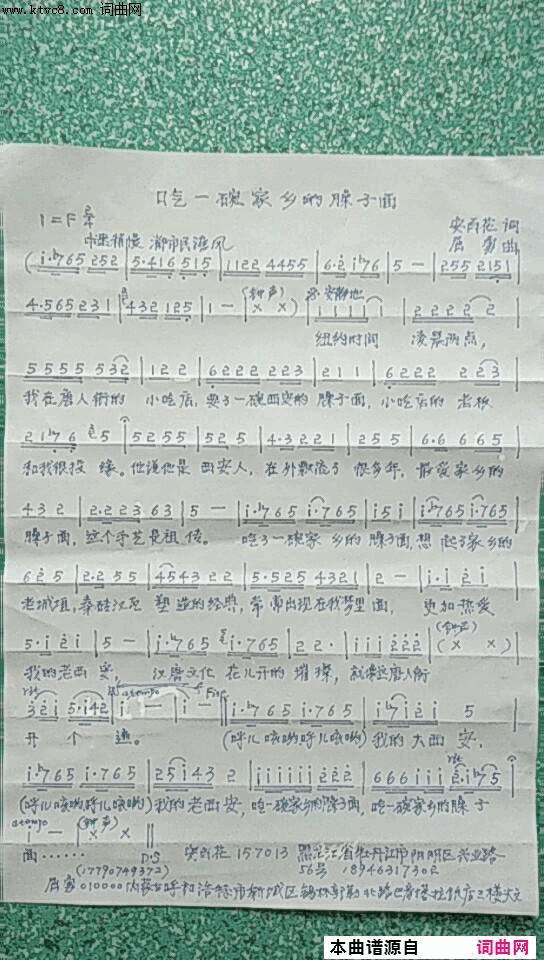 www.ktvc8.com 词曲网
吃一碗家乡的臊子面
1=F 2/4
安西花 词
中速稍慢 都市民谣风
屈家 曲
(i·b765 252 | 5·416 515 | 1122 4455 | 6·2 ib76 | 5 — | 255 2151 |
4·565 231 | 432 125 | 1 — | (钟声) x x) | 1 1 1 1 1 | 2 2 2 2 2 |
纽约时间 凌晨两点,
5 5 5 5 5 532 | 1 2 2 | 6 2 2 2 2 2 3 | 2 1 1 | 6 2 2 2 2 2 3 |
我在唐人街的 小吃店, 要了一碗西安的 臊子面, 小吃店的 老板
2 1b7 6 5 | 5 2 5 5 | 5 2 5 | 4·3 2 2 1 | 2 5 5 | 6·6 6 6 5 |
和我很投 缘。他说他是 西安人, 在外飘流了 很多年, 最爱家乡的
4 3 2 | 2·2 2 3 6 3 | 5 — | i·b765 i·765 | i 5 i | i·b765 i·765 |
臊子面, 这个手艺是祖传。 吃了一碗家 乡的 臊子面, 想 起了家 乡的
6 2 5 | 2·2 5 5 | 4543 2 2 | 5·525 4321 | 2 — | i·i 2 i |
老城垣, 秦砖汉瓦 塑造的经典, 常常出现在我梦里 面, 更加热爱
5·i 2 i | 5 — | i·b765 i·765 | 2 2· | i i i 2 2 2 | (钟声) (x x) |
我的老西安, 汉唐文化 花儿开的 璀璨, 就连这唐人街
rit 3 2 i 5·i42 | a tempo i — | i — Fine || i·b765 i·765 | ib7i2 i 5 |
开 个 遍。 (呼儿嗨哟呼儿嗨哟) 我的 大西 安,
i·b765 i·765 | 2 5 i 4 3 2 | i i i i i i 2 2 2 | 6 6 6 i i i rit 2·ib7 5 |
(呼儿嗨哟呼儿嗨哟) 我的 老西安, 吃一碗家乡的臊子面, 吃一碗家乡的臊 子
a tempo i — | (钟声) x x ||
面…… D.S 安西花 157013 黑龙江省牡丹江市阳明区兴业路
(17790749372) 56号 18946317302
屈家 010000 内蒙古呼和浩特市新城区锡林郭勒北路
本曲谱源自 词曲网